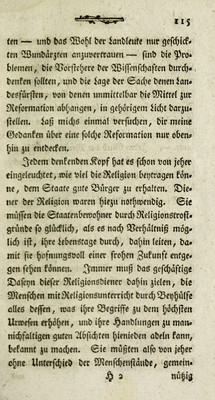 115
ten — und das Wohl der Landleute nur geschick-
ten Wundärzten anzuvertrauen — sind die Pro-
blemen, die Vorstehere der Wissenschaften durch-
denken sollten, und die Lage der Sache denen Lan-
desfürsten, von denen unmittelbar die Mittel zur
Reformation abhangen, in gehörigem Licht darzu-
stellen. Laß michs einmal versuchen, dir meine
Gedanken über eine solche Reformation nur oben-
hin zu entdecken.
Jedem denkenden Kopf hat es schon von jeher
eingeleuchtet, wie viel die Religion beytragen kön-
ne, dem Staate gute Bürger zu erhalten. Die-
ner der Religion waren hiezu nothwendig. Sie
müssen die Staatenbewohner durch Religionstrost-
gründe so glücklich, als es nach Verhältniß mög-
lich ist, ihre Lebenstage durch, dahin leiten, da-
mit sie hofnungsvoll einer frohen Zukunft entge-
gen sehen können. Immer muß das geschäftige
Daseyn dieser Religionsdiener dahin zielen, die
Menschen mit Religionsunterricht durch Beyhülfe
alles dessen, was ihre Begriffe zu dem höchsten
Urwesen erhöhen, und ihre Handlungen zu man-
nichfaltigen guten Absichten hienieden adeln kann,
bekannt zu machen. Sie müßten also von jeher
ohne Unterschied der Menschenstände, gemein-
H 2 nützig